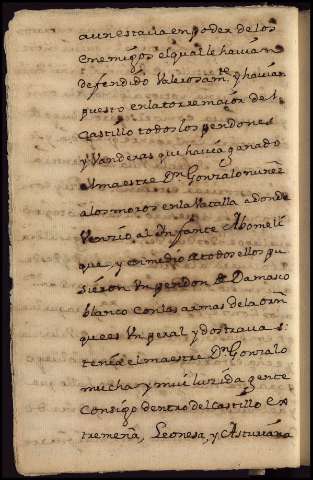 aun estavía en poder de los
enemigos el qual le havían
defendido valerosam.te, y havían
puesto en la torre maior de el
Castillo todos los pendones
y Vanderas que havía ganado
el maestre Dn. Gonzalo nuñez
a los moros en la Vatalla adonde
Venzió al Ynfante Abomeli
que, y en medio de todos ellos pu
sieron Un pendon de Damasco
blanco con las armas de la orn
que es Un peral y dos travas:
tenía el maestre Dn. Gonzalo
mucha y mui luzida gente
Consigo dentro del Castillo Ex
tremeña, Leonesa, y Asturiana